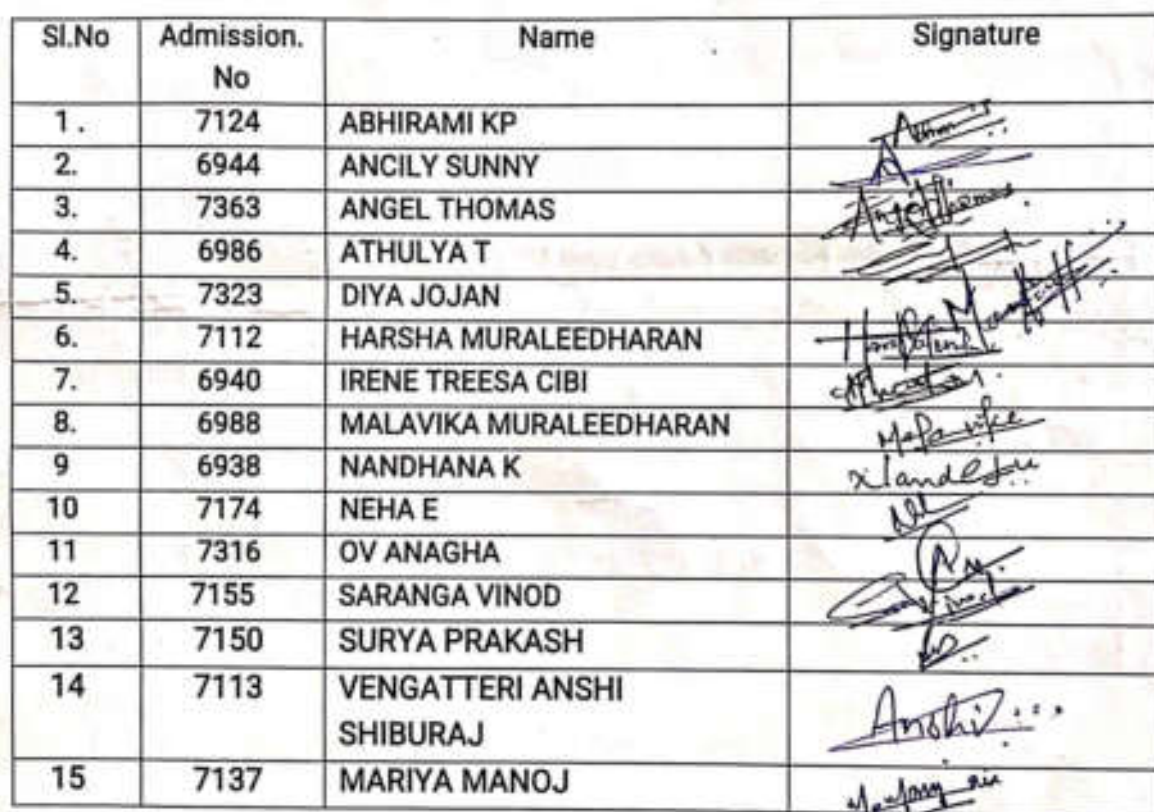 Sl.No Admission. Name Signature
No
1. 7124 ABHIRAMI KP
2. 6944 ANCILY SUNNY
3. 7363 ANGEL THOMAS Angel Thomas
4. 6986 ATHULYA T
5. 7323 DIYA JOJAN
6. 7112 HARSHA MURALEEDHARAN
7. 6940 IRENE TREESA CIBI
8. 6988 MALAVIKA MURALEEDHARAN Malavika
9 6938 NANDHANA K
10 7174 NEHA E
11 7316 OV ANAGHA
12 7155 SARANGA VINOD
13 7150 SURYA PRAKASH
14 7113 VENGATTERI ANSHI Anshi
SHIBURAJ
15 7137 MARIYA MANOJ